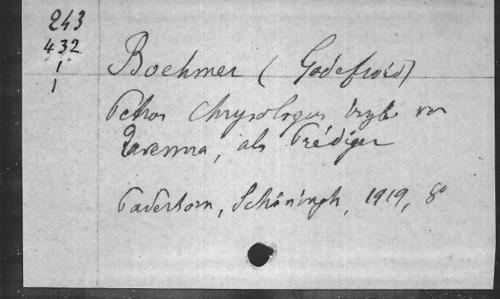 243
432
1
1
Boehmer (Godefroid)
Petrus Chrysologus Erzb. von
Ravenna, als Prédiger
Paderborn, Schöningh, 1919, 8°